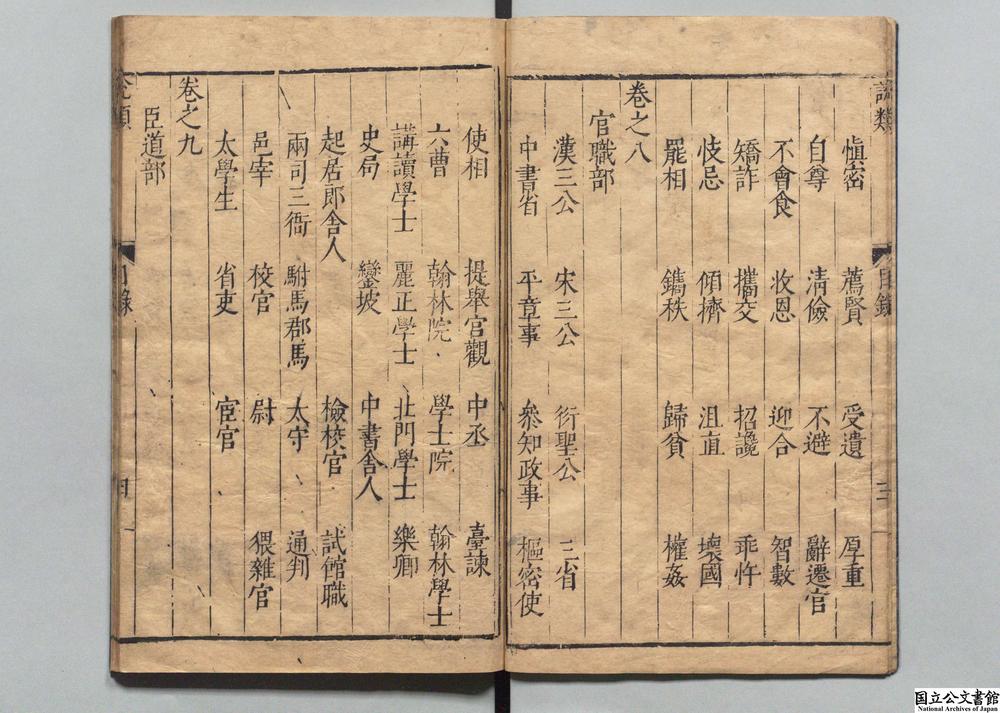 說類 目錄 三
慎密 薦賢 受遺 厚重
自尊 清儉 不避 辭遷官
不會食 收恩 迎合 智數
矯詐 攜交 招讒 乖忤
忮忌 傾擠 沮直 壞國
罷相 鐫秩 歸貧 權姦
卷之八
官職部
漢三公 宋三公 衍聖公 三省
中書省 平章事 參知政事 樞密使
使相 提舉官觀 中丞 臺諫
六曹 翰林院 學士院 翰林學士
講讀學士 麗正學士 北門學士 樂卿
史局 鑾坡 中書舍人
起居郎舍人 檢校官 試館職
兩司三衙 駙馬郡馬 太守 通判
邑宰 校官 尉 猥雜官
太學生 省吏 宦官
卷之九
臣道部
目錄
国立公文書館
National Archives of Japan